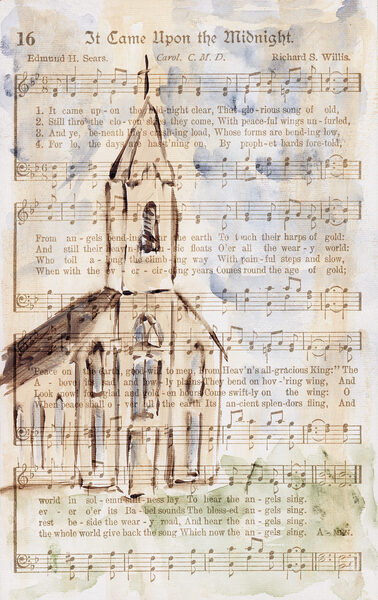 16 It Came Upon the Midnight.
Edmund H. Sears. Carol. C. M. D. Richard S. Willis.
1. It came up - on the mid-night clear, That glo-rious song of old,
2. Still thro' the clo-ven skies they come, With peace-ful wings un-furled,
3. And ye, be-neath life's crush-ing load, Whose forms are bend-ing low,
4. For lo, the days are hast'ning on, By proph-et bards fore-told,
From an - gels bend-ing near the earth To touch their harps of gold:
And still their heav'n-ly mu-sic floats O'er all the wea-ry world:
Who toil a - long the climb-ing way With pain-ful steps and slow,
When with the ev - er - cir-cling years Comes round the age of gold;
"Peace on the earth, good-will to men, From Heav'n's all-gracious King:" The
A - bove its sad and low-ly plains They bend on hov-'ring wing, And
Look now, for glad and gold-en hours Come swift-ly on the wing: O
When peace shall o - ver all the earth Its an-cient splen-dors fling, And
world in sol - emn still-ness lay To hear the an-gels sing.
ev - er o'er its Ba-bel sounds The bless-ed an-gels sing.
rest be-side the wear-y road, And hear the an-gels sing.
the whole world give back the song Which now the an-gels sing. A-MEN.